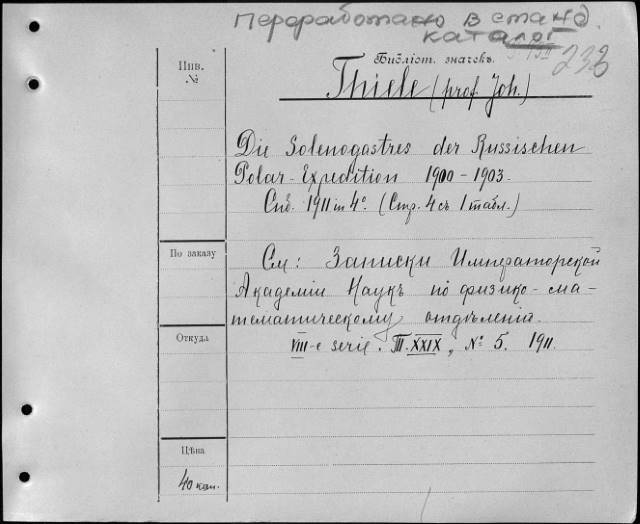 переработано в станд.
каталог
238
Инв.
№
Библіот. значекъ.
Thiele (prof. Joh.)
Die Solenogastres der Russischen
Polar-Expedition 1900-1903.
Спб. 1911 in 4°. (Стр. 4 съ 1 табл.)
По заказу
См: Записки Императорской
Академіи Наукъ по физико-ма-
тематическому отдѣленію.
Откуда
VIII-e serie. Т. XXIX, № 5. 1911.
Цѣна
40 коп.